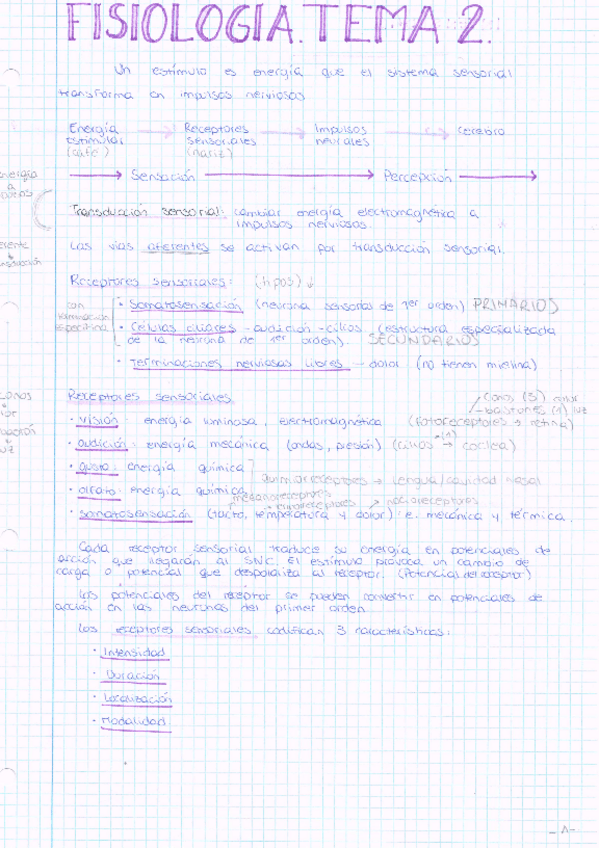 FISIOLOGIA. TEMA 2.
Un estímulo es energía que el sistema sensorial
transforma en impulsos nerviosos
Energía → Receptores → Impulsos → cerebro
estímulos sensoriales neurales
(café) (nariz)
→ Sensación → Percepción →
Transducción sensorial: cambiar energía electromagnética a
impulsos nerviosos.
Las vías aferentes se activan por transducción sensorial.
Receptores sensoriales: (tipos) ↓
• Somatosensación (neurona sensorias de 1er orden) PRIMARIOS
• Células ciliares - audición - cilios (estructura especializada
de la neurona de 1er orden). SECUNDARIOS
• Terminaciones nerviosas libres - dolor (no tienen mielina)
Receptores sensoriales
conos (3) color
bastones (1) luz
• visión: energía luminosa, electromagnética (fotoreceptores → retina)
• audición: energía mecánica (ondas, presión) (cilios → coclea)
• gusto: energía química
quimiorreceptores → lengua/cavidad nasal
• olfato: energía química
→ nocioreceptores
• somatosensación (tacto, temperatura y dolor): e. mecánica y térmica.
Cada receptor sensorial traduce su energía en potenciales de
acción que llegarán al SNC. El estímulo provoca un cambio de
carga o potencial que despolariza al receptor. (Potencial del receptor)
Los potenciales del receptor se pueden convertir en potenciales de
acción en las neuronas del primer orden.
Los receptores sensoriales codifican 3 características:
• Intensidad
• Duración
• Localización
• Modalidad
-A-